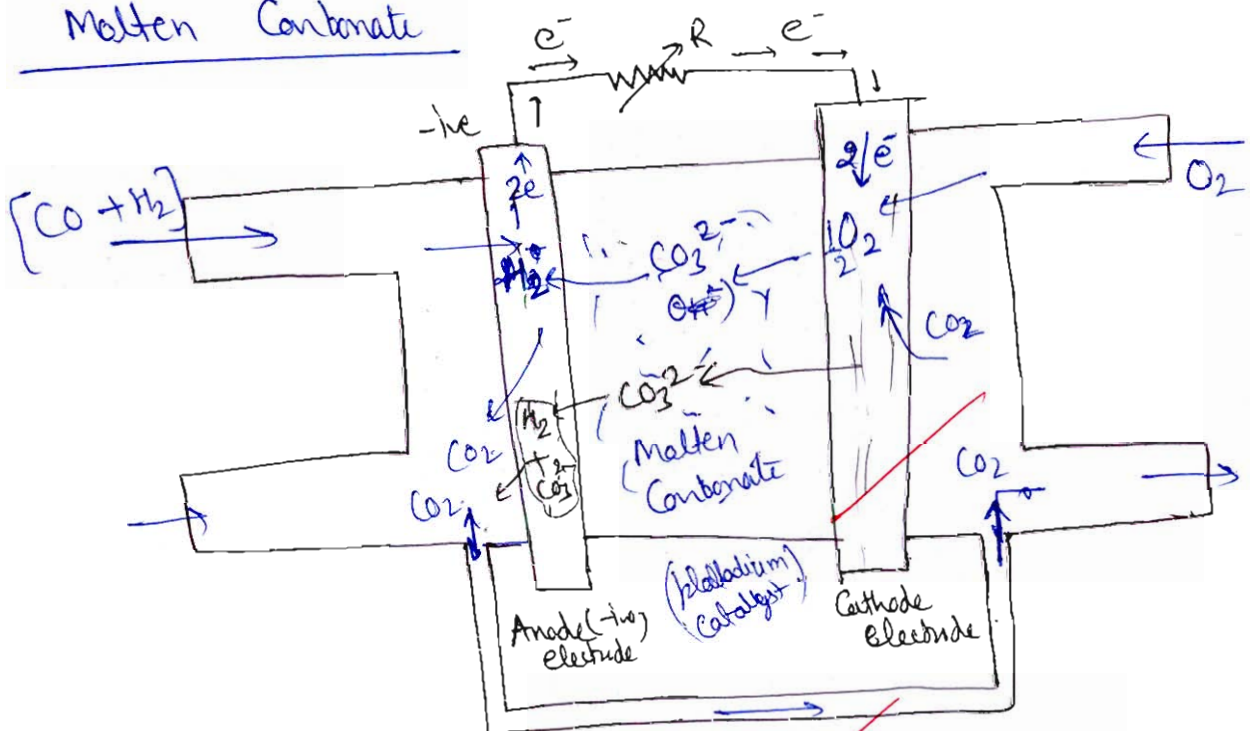 Molten Carbonate
e⁻ R e⁻
-ive
2e⁻
O₂
[CO + H₂]
2e
CO₃²⁻
½O₂
H₂
CO₂
CO₃²⁻
H₂
+
CO₃²⁻
CO₂
Molten
Carbonate
CO₂
CO₂
catalyst)
Anode(-ive)
electrode
Cathode
electrode